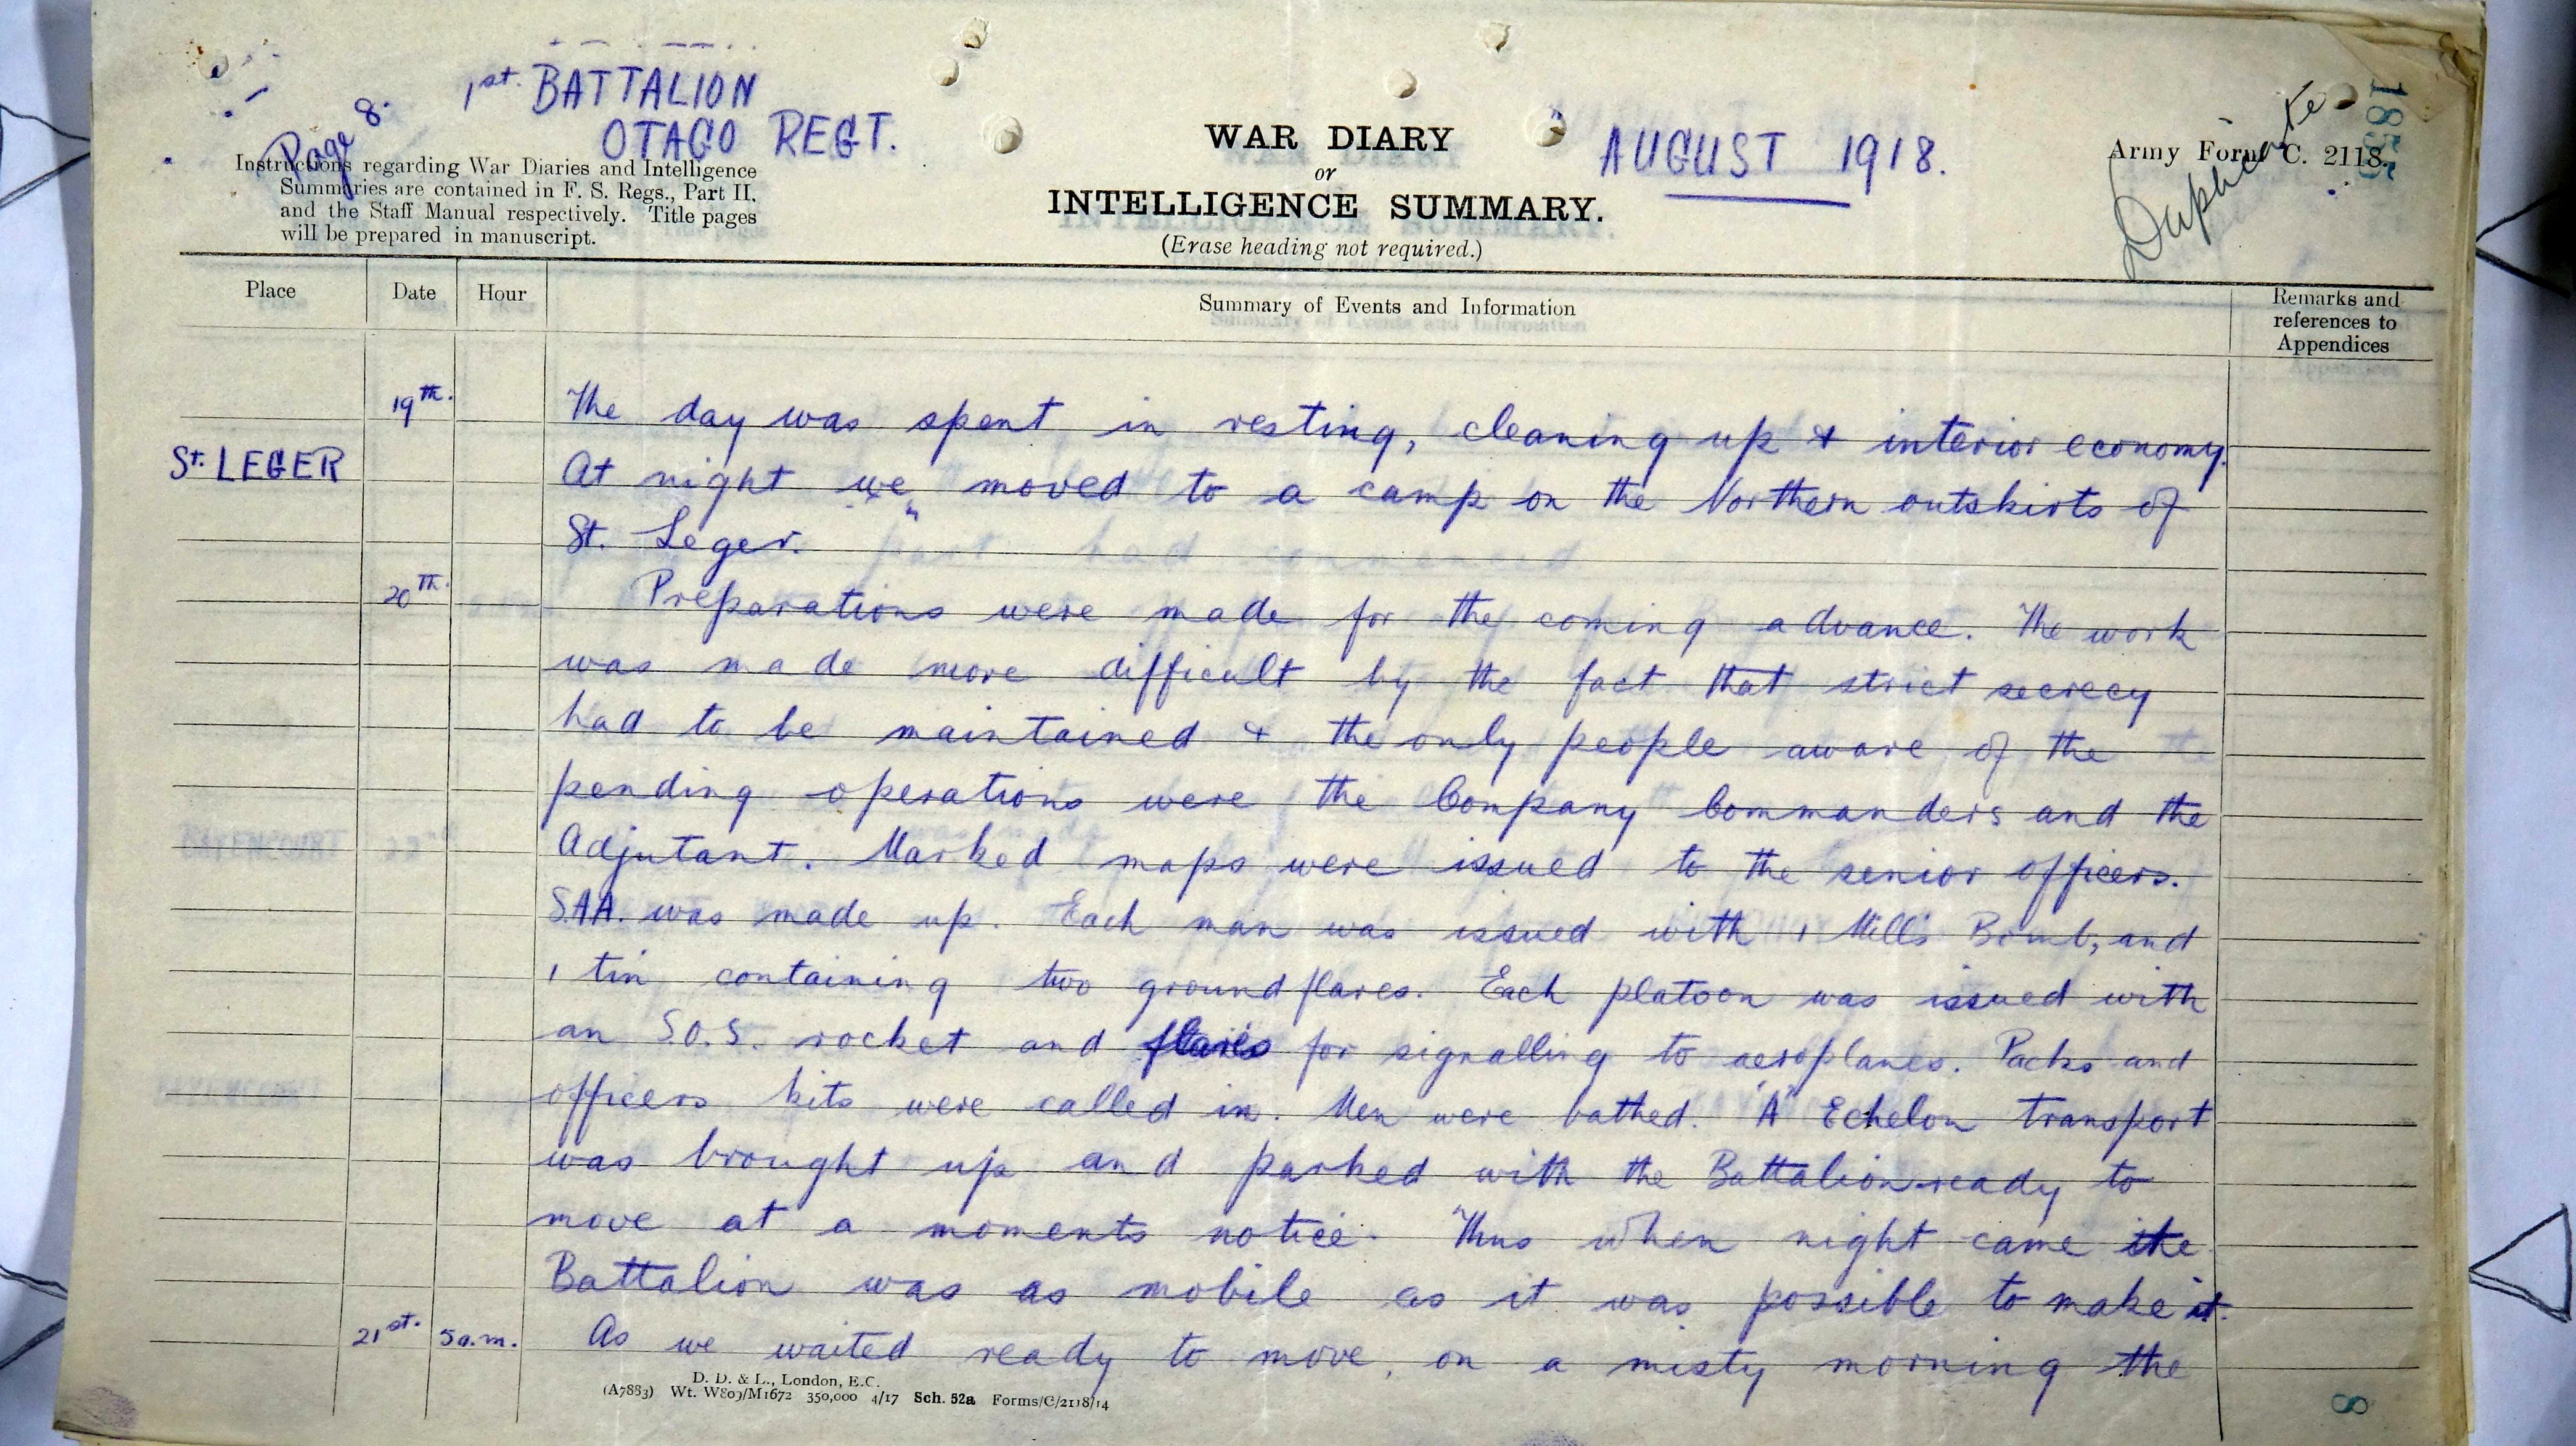 Page 8.
1st. BATTALION
OTAGO REGT.
Instructions regarding War Diaries and Intelligence
Summaries are contained in F. S. Regs., Part II.
and the Staff Manual respectively. Title pages
will be prepared in manuscript.
WAR DIARY
or
INTELLIGENCE SUMMARY.
(Erase heading not required.)
AUGUST 1918.
Army Form C. 2118.
Duplicate
Place Date Hour Summary of Events and Information Remarks and
references to
Appendices
19th. The day was spent in resting, cleaning up & interior economy.
St. LEGER At night we moved to a camp on the Northern outskirts of
St. Leger.
20th. Preparations were made for the coming advance. The work
was made more difficult by the fact that strict secrecy
had to be maintained & the only people aware of the
pending operations were the Company Commanders and the
Adjutant. Marked maps were issued to the senior officers.
S.A.A. was made up. Each man was issued with 1 Mills Bomb, and
1 tin containing two ground flares. Each platoon was issued with
an S.O.S. rocket and flares for signalling to aeroplanes. Packs and
officers kits were called in. Men were bathed. "A" Echelon transport
was brought up and parked with the Battalion ready to
move at a moments notice. Thus when night came the
Battalion was as mobile as it was possible to make it.
21st. 5a.m. As we waited ready to move, on a misty morning the
D. D. & L., London, E.C.
(A7883) Wt. W809/M1672 350,000 4/17 Sch. 52a Forms/C/2118/14
8